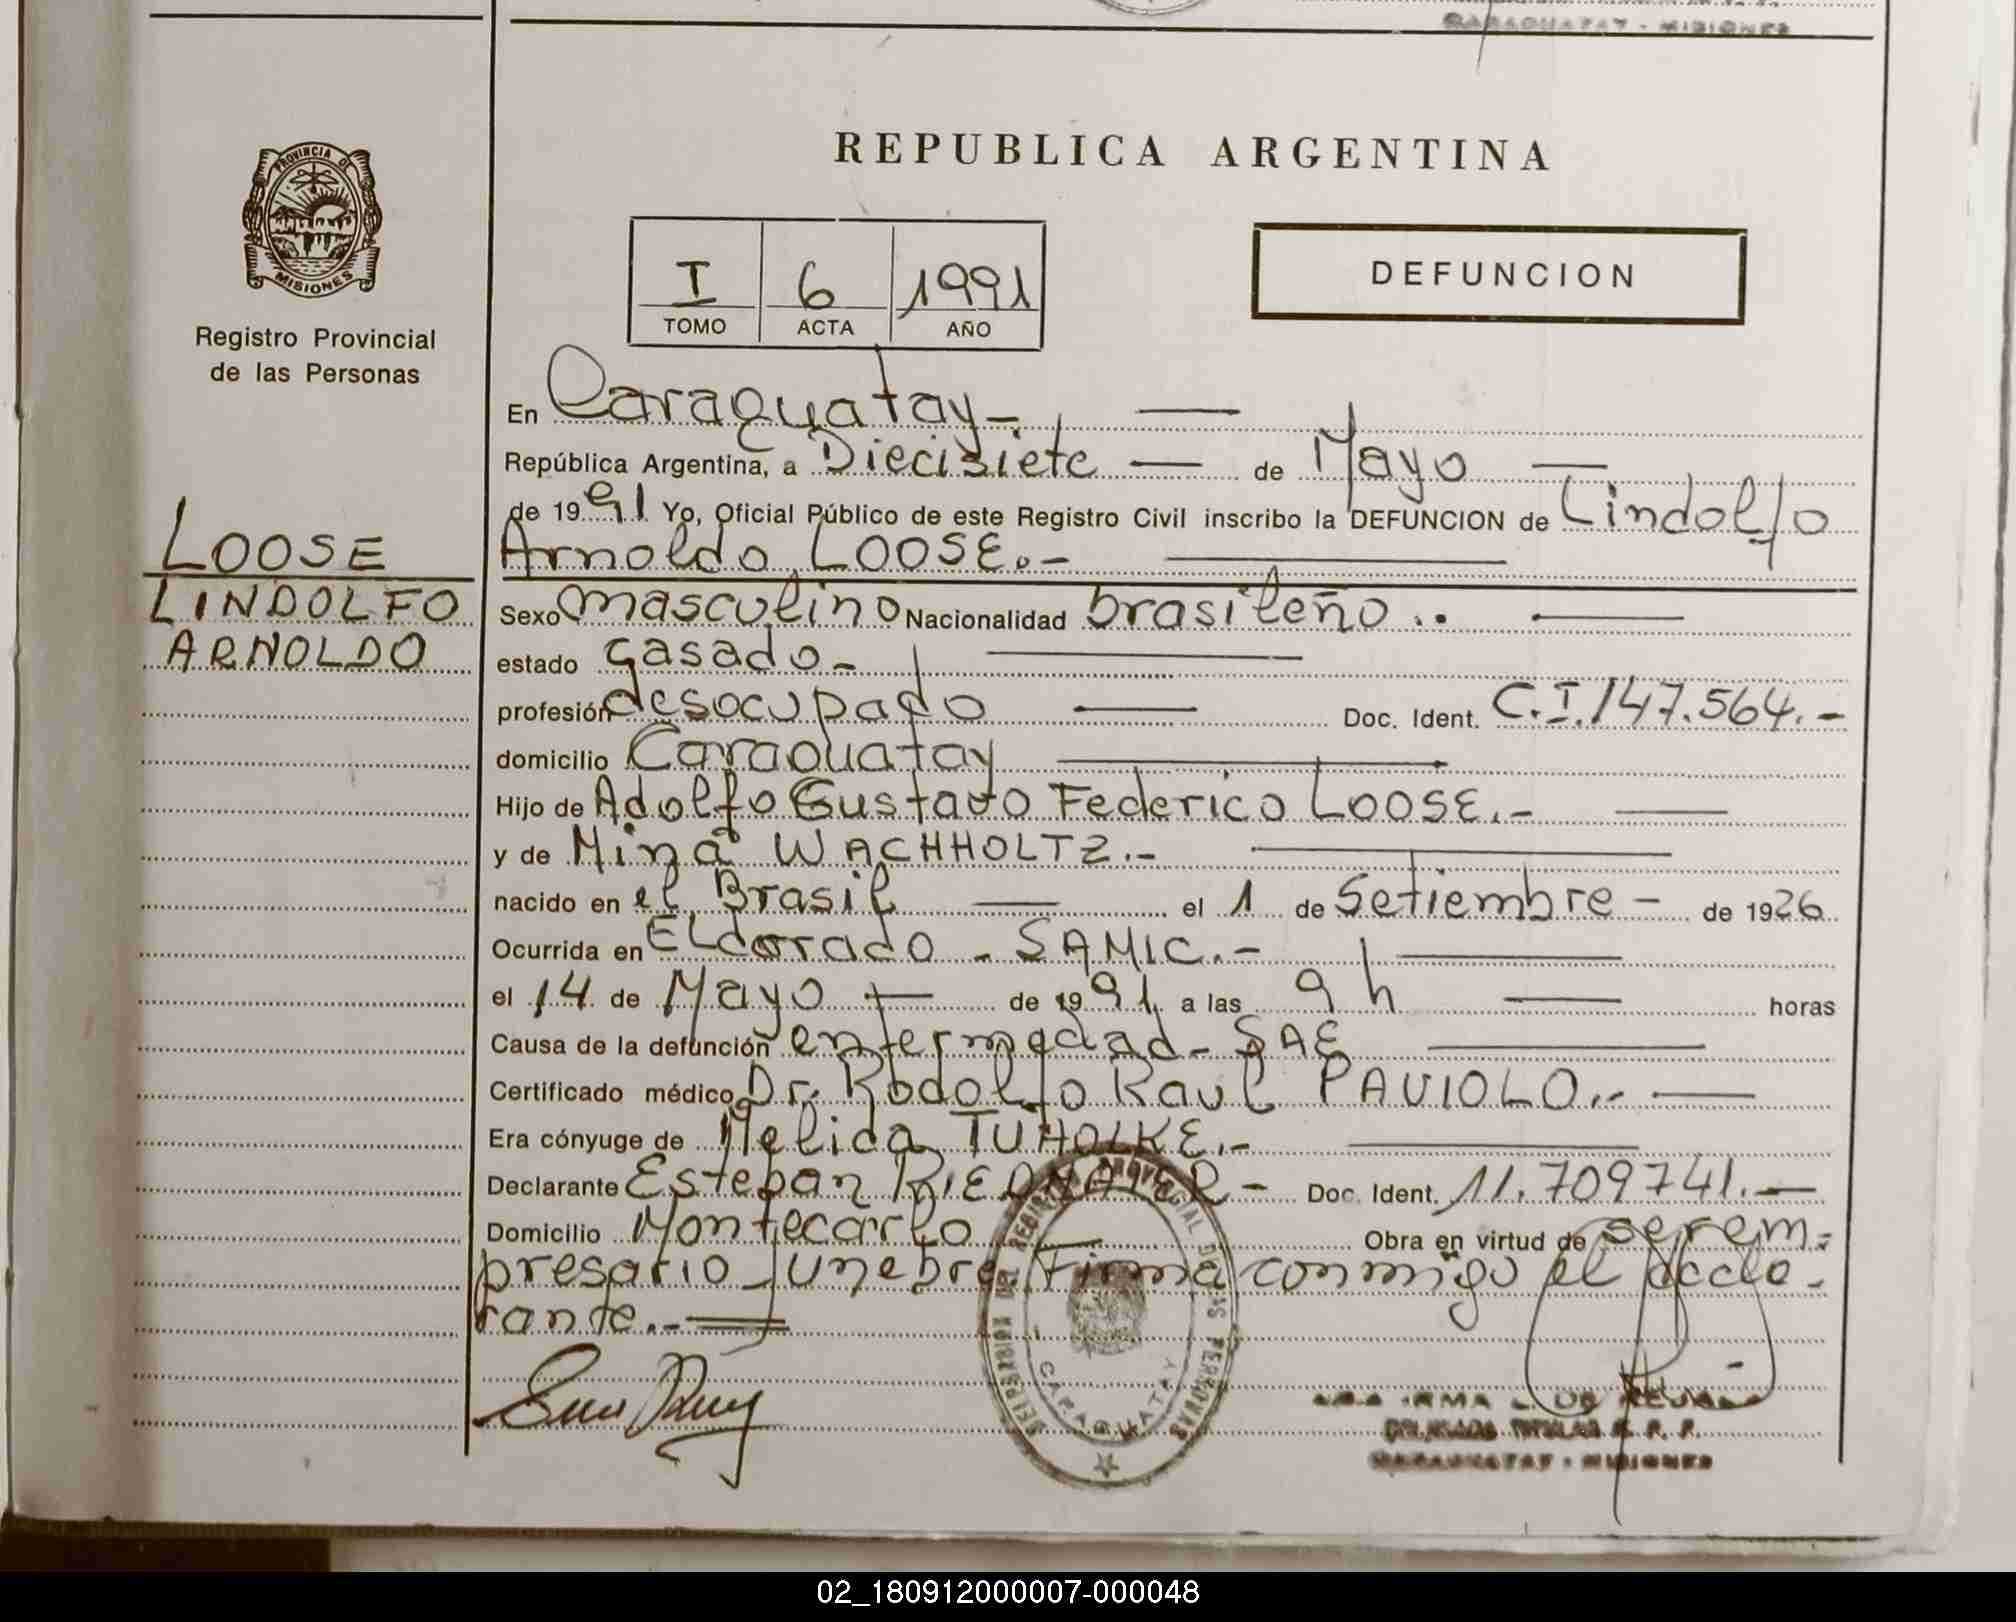 CARAGUATAY - MISIONES
REPUBLICA ARGENTINA
PROVINCIA DE
MISIONES
Registro Provincial
de las Personas
I 6 1991
TOMO ACTA AÑO
DEFUNCION
En Caraguatay.-
República Argentina, a Diecisiete de Mayo
de 1991 Yo, Oficial Público de este Registro Civil inscribo la DEFUNCION de Lindolfo
Arnoldo LOOSE.-
LOOSE
LINDOLFO
ARNOLDO
Sexo masculino Nacionalidad brasileño..
estado casado-
profesión desocupado Doc. Ident. C.I.147.564.-
domicilio Caraguatay
Hijo de Adolfo Gustavo Federico LOOSE.-
y de Mina WACHHOLTZ.-
nacido en el Brasil el 1 de Setiembre - de 1926
Ocurrida en ELdorado - SAMIC.-
el 14 de Mayo de 1991. a las 9 h horas
Causa de la defunción enfermedad - SAE
Certificado médico Dr. Rodolfo Raul PAVIOLO.-
Era cónyuge de Melida TUHOLKE.-
Declarante Esteban - Doc. Ident. 11.709741.-
Domicilio Montecarlo Obra en virtud de ser em-
presario funebre Firma conmigo el decla-
rante.-
REGISTRO PROVINCIAL DE LAS PERSONAS
CARAGUATAY
IRMA L. DE
DELEGADA TITULAR R. P. P.
CARAGUATAY - MISIONES
02_180912000007-000048